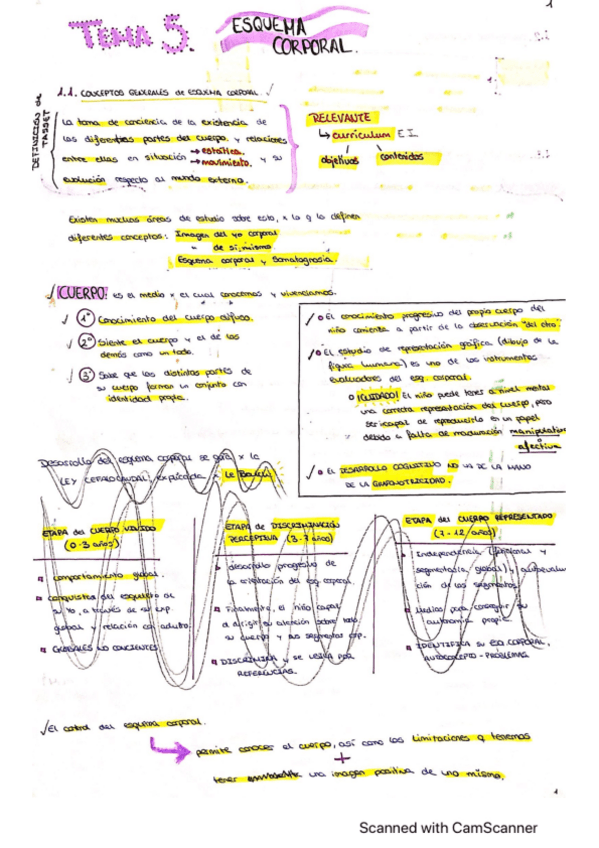 1
TEMA 5. ESQUEMA
CORPORAL.
1.1. CONCEPTOS GENERALES de ESQUEMA CORPORAL. √
DEFINICIÓN de
TASSET
La toma de conciencia de la existencia de
las diferentes partes del cuerpo y relaciones
entre ellas en situación → estática.
→ movimiento. y su
evolución respecto al mundo externo.
RELEVANTE
↳ curriculum E.I.
objetivos contenidos
Existen muchas áreas de estudio sobre esto, x lo q lo definen
diferentes conceptos: Imagen del yo corporal
" de sí mismo
Esquema corporal y Somatognosia.
√ CUERPO: es el medio x el cual conocemos y vivenciamos.
√ 1º Conocimiento del cuerpo difuso.
√ 2º Siente el cuerpo y el de los
demás como un todo.
√ 3º Sabe que las distintas partes de
su cuerpo forman un conjunto con
identidad propia.
√ o El conocimiento progresivo del propio cuerpo del
niño comienza a partir de la observación "del otro".
√ o El estudio de representación gráfica (dibujo de la
figura humana) es uno de los instrumentos
evaluadores del esq. corporal.
o ¡CUIDADO! El niño puede tener a nivel mental
una correcta representación del cuerpo, pero
ser incapaz de reproducirlo en un papel
debido a falta de maduración manipulativa
o
afectiva
√ o EL DESARROLLO COGNITIVO NO VA DE LA MANO
DE LA GRAFOMOTRICIDAD.
Desarrollo del esquema corporal se guía x la
LEY CEFALOCAUDAL, explicada x Le Boulch
ETAPA del CUERPO VIVIDO
(0-3 años)
comportamiento global.
conquista del esqueleto de
su yo, a través de su exp.
global y relación con adulto.
GLOBALES NO CONCIENTES.
ETAPA de DISCRIMINACIÓN
PERCEPTIVA (3-7 años)
desarrollo progresivo de
la orientación del esq. corporal.
Finalmente, el niño capaz
de dirigir su atención sobre todo
su cuerpo y sus segmentos esp.
DISCRIMINA y se GUÍA POR
REFERENCIAS.
ETAPA del CUERPO REPRESENTADO
(7-12 años)
Independencia (funcional y
segmentaria, global), y
ción de los segmentos.
Medios para conseguir su
autonomía propia.
IDENTIFICA su EQ CORPORAL,
AUTOCONCEPTO - PROBLEMAS.
√ El control del esquema corporal.
→ permite conocer el cuerpo, así como las limitaciones q tenemos
+
tener una imagen positiva de uno mismo.
Scanned with CamScanner